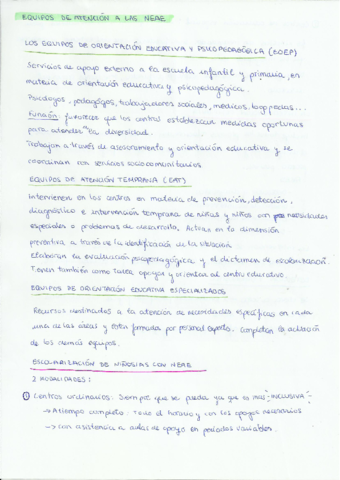 EQUIPOS DE ATENCIÓN A LAS NEAE
LOS EQUIPOS DE ORIENTACIÓN EDUCATIVA Y PSICOPEDAGÓGICA (EOEP)
Servicios de apoyo externo a la escuela infantil y primaria, en
materia de orientación educativa y psicopedagógica.
Psicólogos, pedagógos, trabajadores sociales, médicos, logopedas...
Función: favorecer que los centros establezcan medidas oportunas
para atender la diversidad.
Trabajan a través de asesoramiento y orientación educativa y se
coordinan con servicios sociocomunitarios
EQUIPOS DE ATENCIÓN TEMPRANA (EAT)
Intervienen en los centros en materia de prevención, detección,
diagnóstico e intervención temprana de niñas y niños con necesidades
especiales o problemas de desarrollo. Actúan en la dimensión
preventiva a través de la identificación de la situación
Elaboran la evaluación psicopedagógica y el dictamen de escolarización.
Tienen también como tarea apoyar y orientar al centro educativo
EQUIPOS DE ORIENTACIÓN EDUCATIVA ESPECIALIZADOS
Recursos destinados a la atención de necesidades específicas en cada
una de las áreas y están formada por personal experto. Completan la actuación
de los demás equipos.
ESCOLARIZACIÓN DE NIÑOS/AS CON NEAE
2 MODALIDADES:
① Centros ordinarios: Siempre que se pueda ya que es más "INCLUSIVA"
→ A tiempo completo: Todo el horario y con los apoyos necesarios
→ con asistencia a aulas de apoyo en periodos variables.